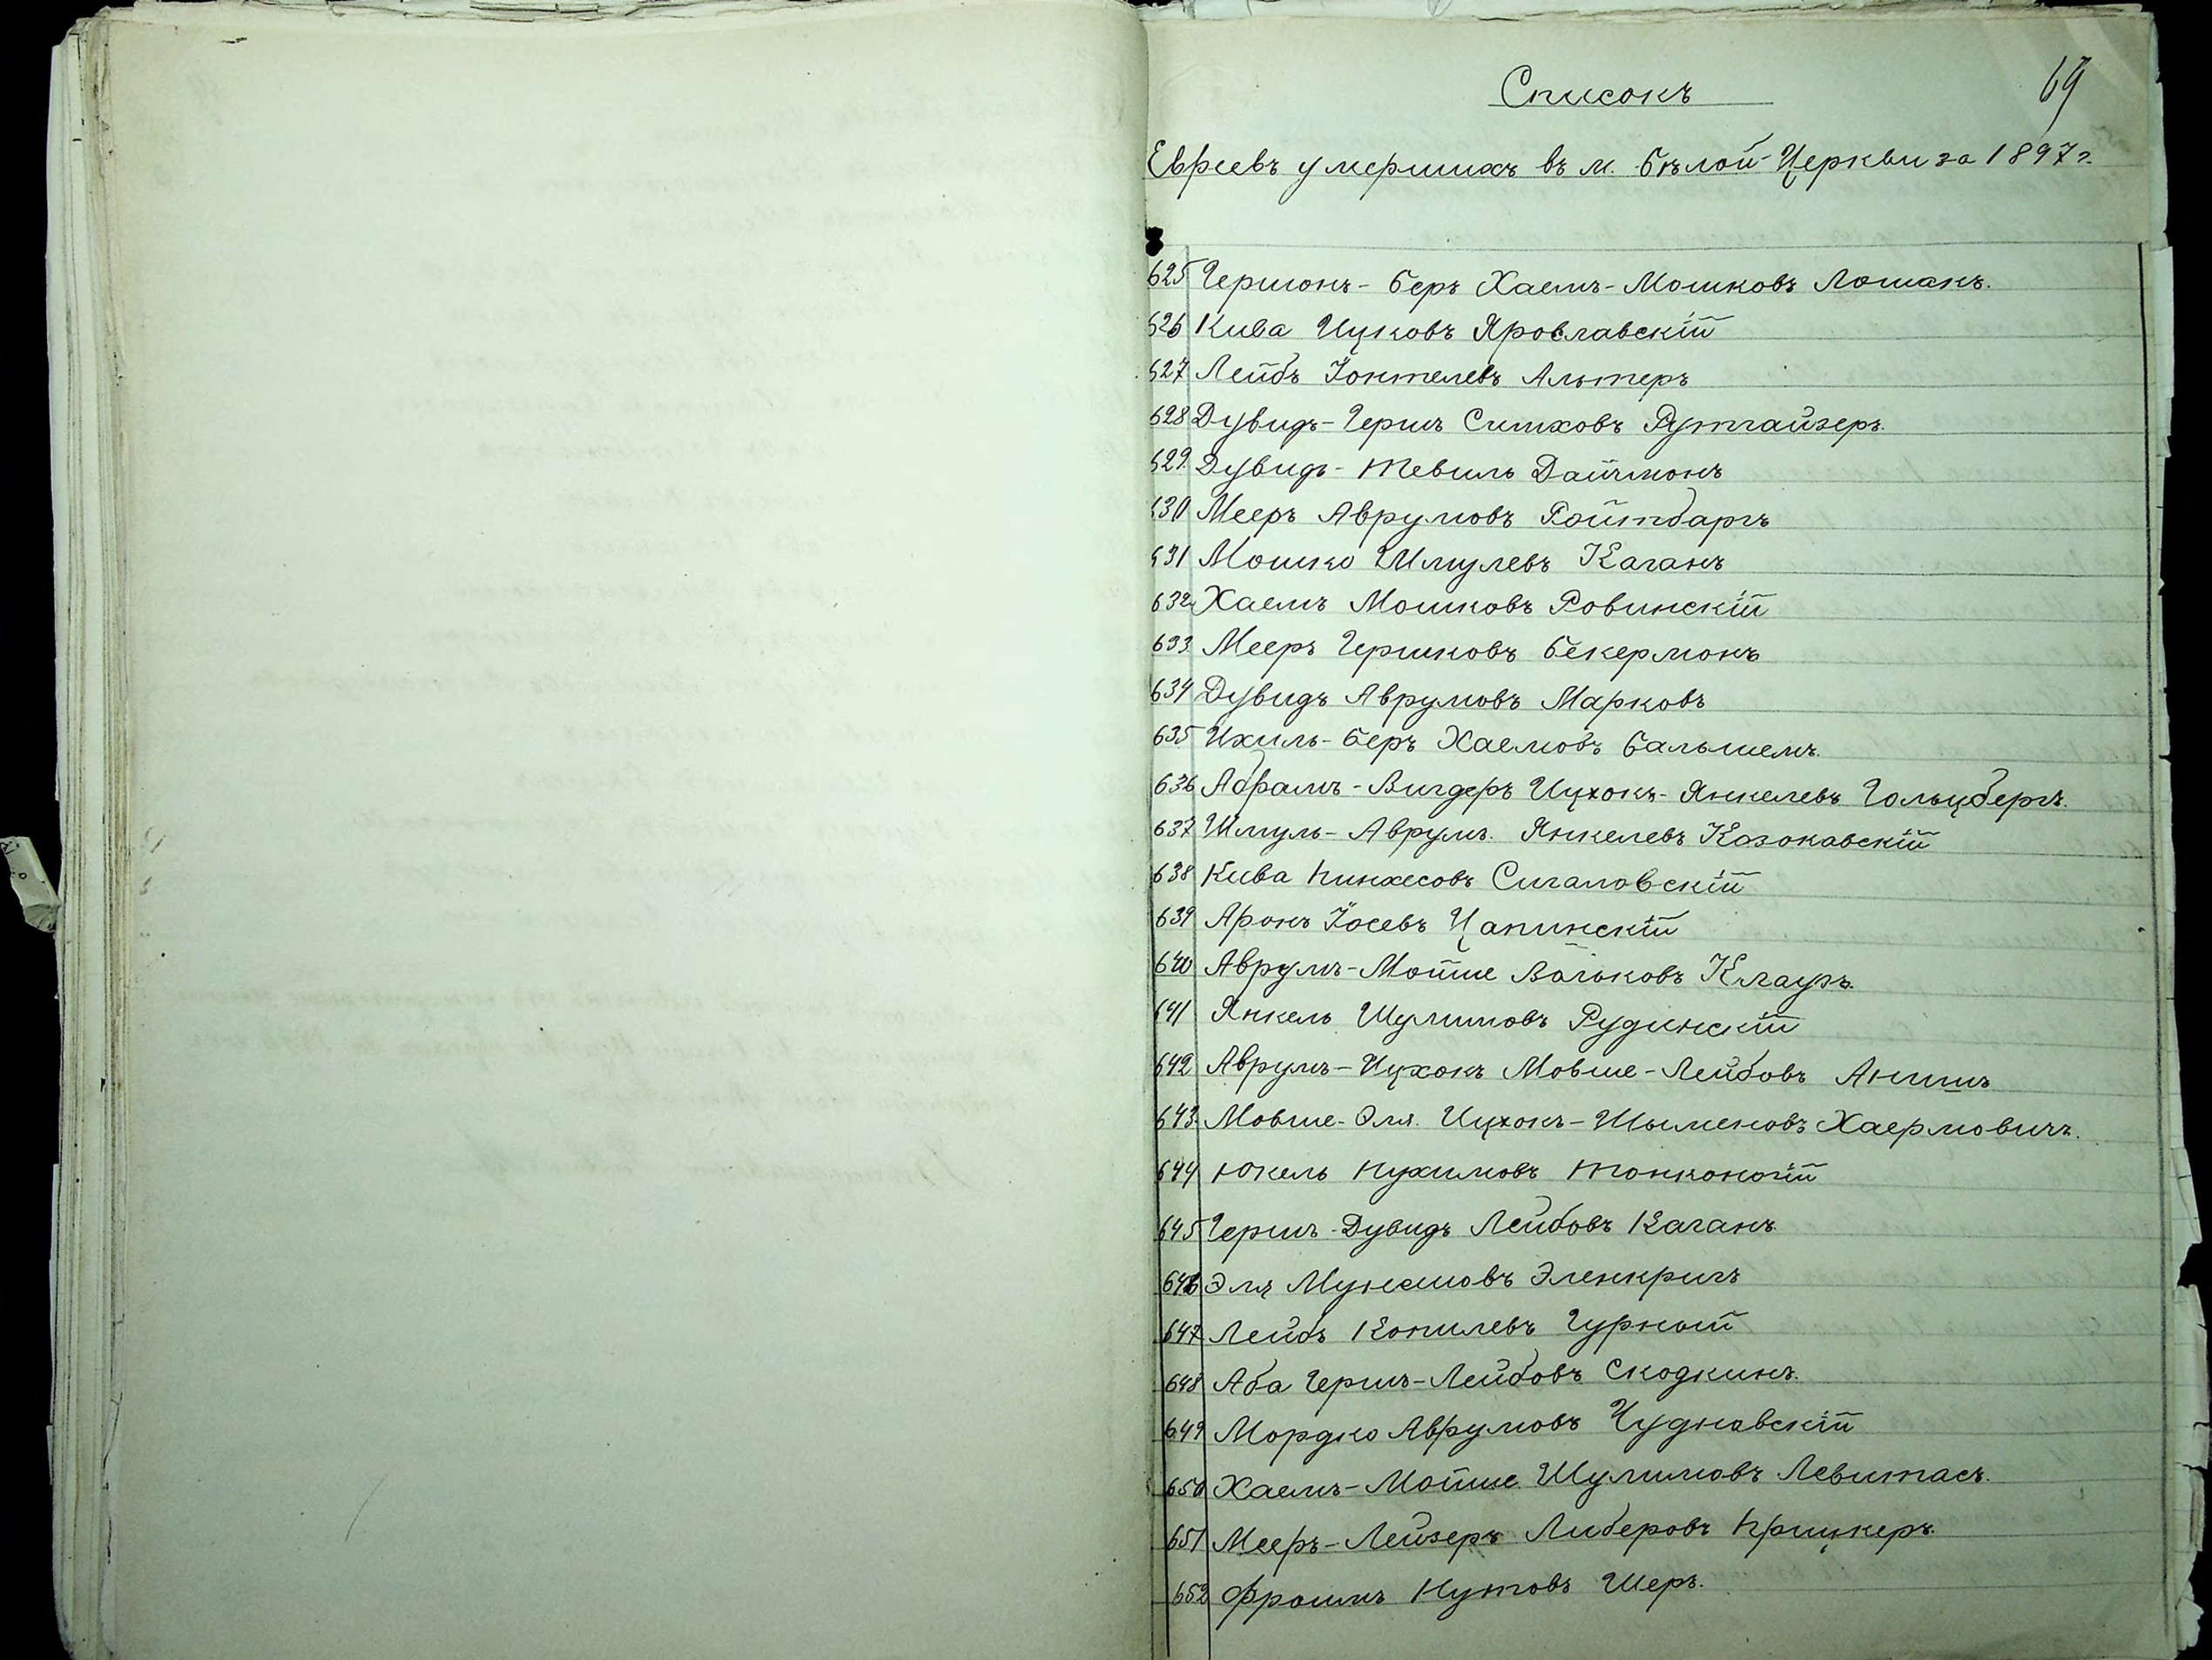 69
Списокъ
Евреевъ умершихъ въ м. Бѣлой-Церкви за 1897 г.
625 Гершонъ-Беръ Хаемъ-Мошковъ Лошакъ.
626 Кива Ицковъ Ярославскій
627 Лейбъ Іонтелевъ Альтеръ
628 Дувидъ-Гершъ Симховъ Рутгайзеръ.
629. Дувидъ-Тевиль Дайчмонъ
630 Мееръ Аврумовъ Ройтбаргъ
631 Мошко Шмулевъ Каганъ
632. Хаемъ Мошковъ Ровинскій
633. Мееръ Гершковъ Бекермонъ
634 Дувидъ Аврумовъ Марковъ
635 Ихиль-Беръ Хаемовъ Бальшемъ.
636 Абрамъ-Вигдеръ Ицхокъ-Янкелевъ Гольцбергъ.
637 Шмуль-Аврумъ. Янкелевъ Козокавскій
638 Кива Пинхесовъ Сигаловскій
639 Аронъ Іосевъ Цапинскій
640 Аврумъ-Мойше Вольковъ Клаузъ.
641 Янкель Шулимовъ Рудинскій
642 Аврумъ-Ицхокъ Мовше-Лейбовъ Аншиъ
643. Мовше-Эля. Ицхокъ-Шыменовъ Хаермовичъ.
644 Юкель Нухимовъ Тонконогій
645 Гершъ-Дувидъ Лейбовъ Каганъ
646 Эля Мунешовъ Эленкригъ
647. Лейбъ Копилевъ Гурной
648 Аба Гершъ-Лейбовъ Скодкинъ.
649 Мордко Аврумовъ Чуднавскій
650 Хаемъ-Мойше Шулимовъ Левитасъ.
651 Мееръ-Лейзеръ Либеровъ Прицкеръ.
652 Фроимъ Нутовъ Шеръ.